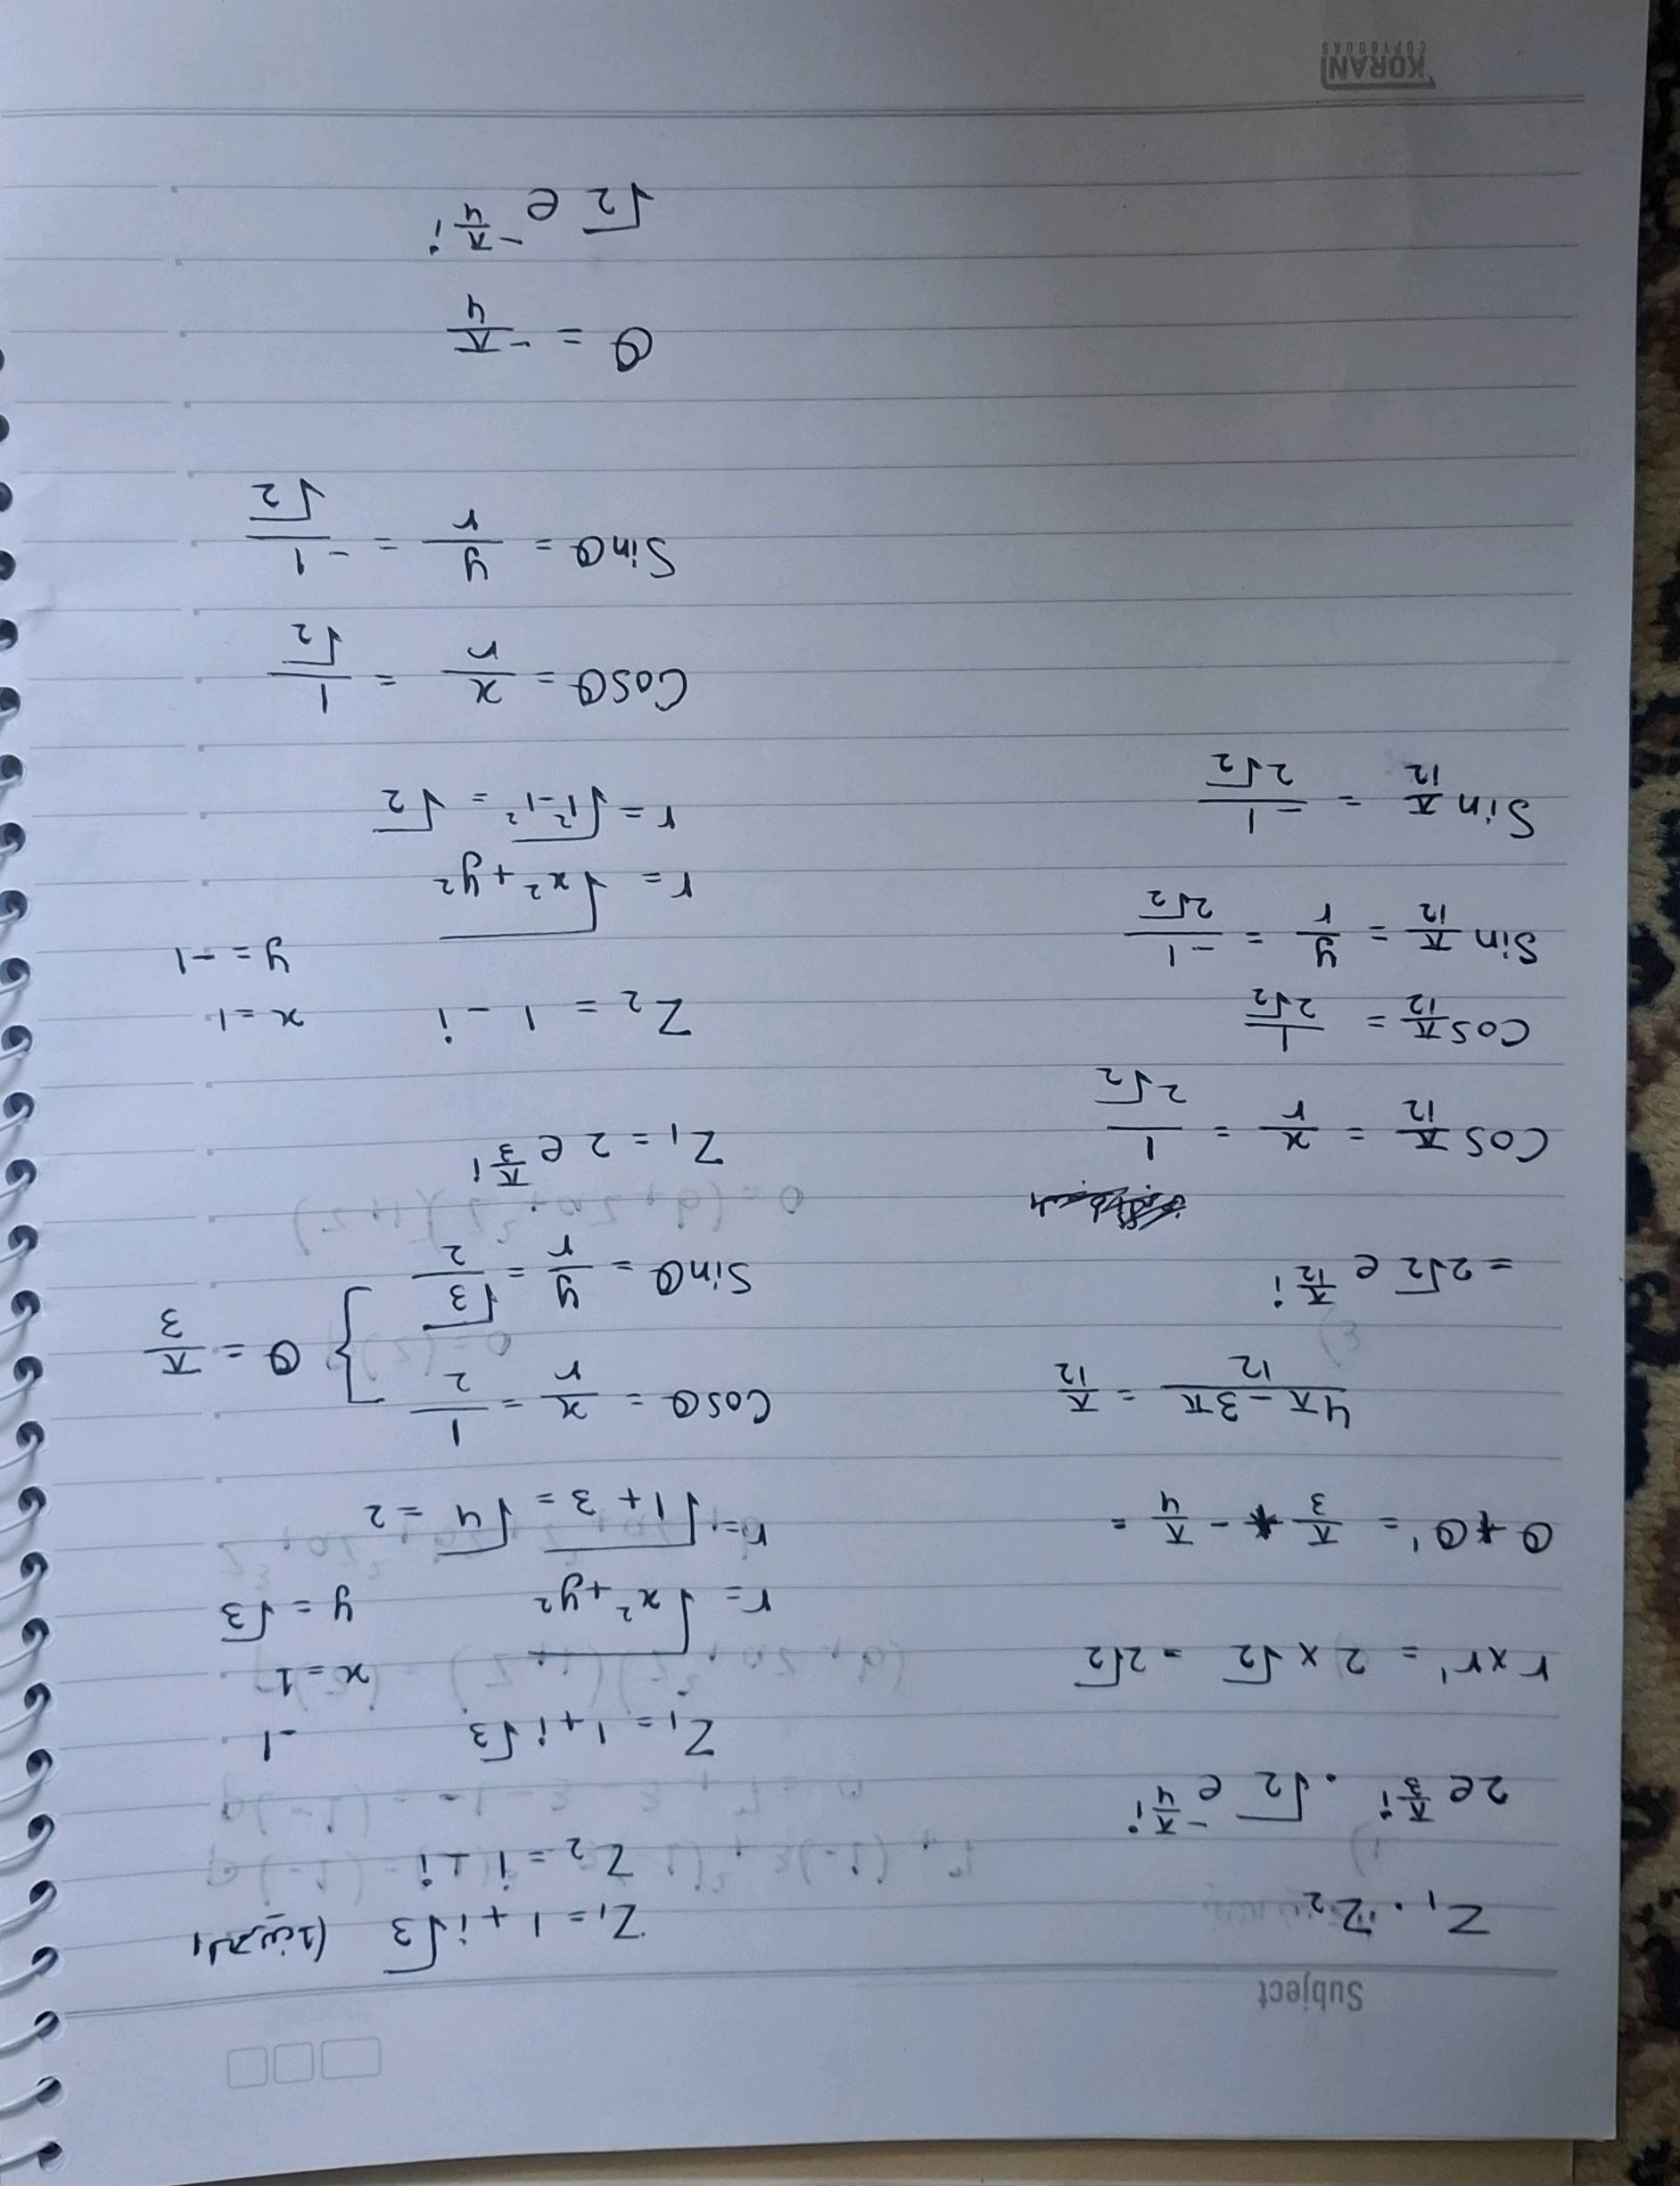 Subject
Z₁ = 1 + i√3 (1
Z₂ = 1 - i
Z₁ = 1 + i√3 -1
x = 1
r = √x² + y² y = √3
r = √1 + 3 = √4 = 2
Cosθ = x/r = 1/2
Sinθ = y/r = √3/2 } θ = π/3
Z₁ = 2 e^(π/3 i)
Z₂ = 1 - i x = 1
y = -1
r = √x² + y²
r = √1² -1² = √2
Cosθ = x/r = 1/√2
Sinθ = y/r = -1/√2
θ = -π/4
√2 e^(-π/4 i)
Z₁ . Z₂
2e^(π/3 i) . √2 e^(-π/4 i)
r x r' = 2 x √2 = 2√2
θ + θ' = π/3 - π/4 =
4π - 3π/12 = π/12
= 2√2 e^(π/12 i)
Cos π/12 = x/r = 1/2√2
Cos π/12 = 1/2√2
Sin π/12 = y/r = -1/2√2
Sin π/12 = -1/2√2
KORAN
COPYBOOKS